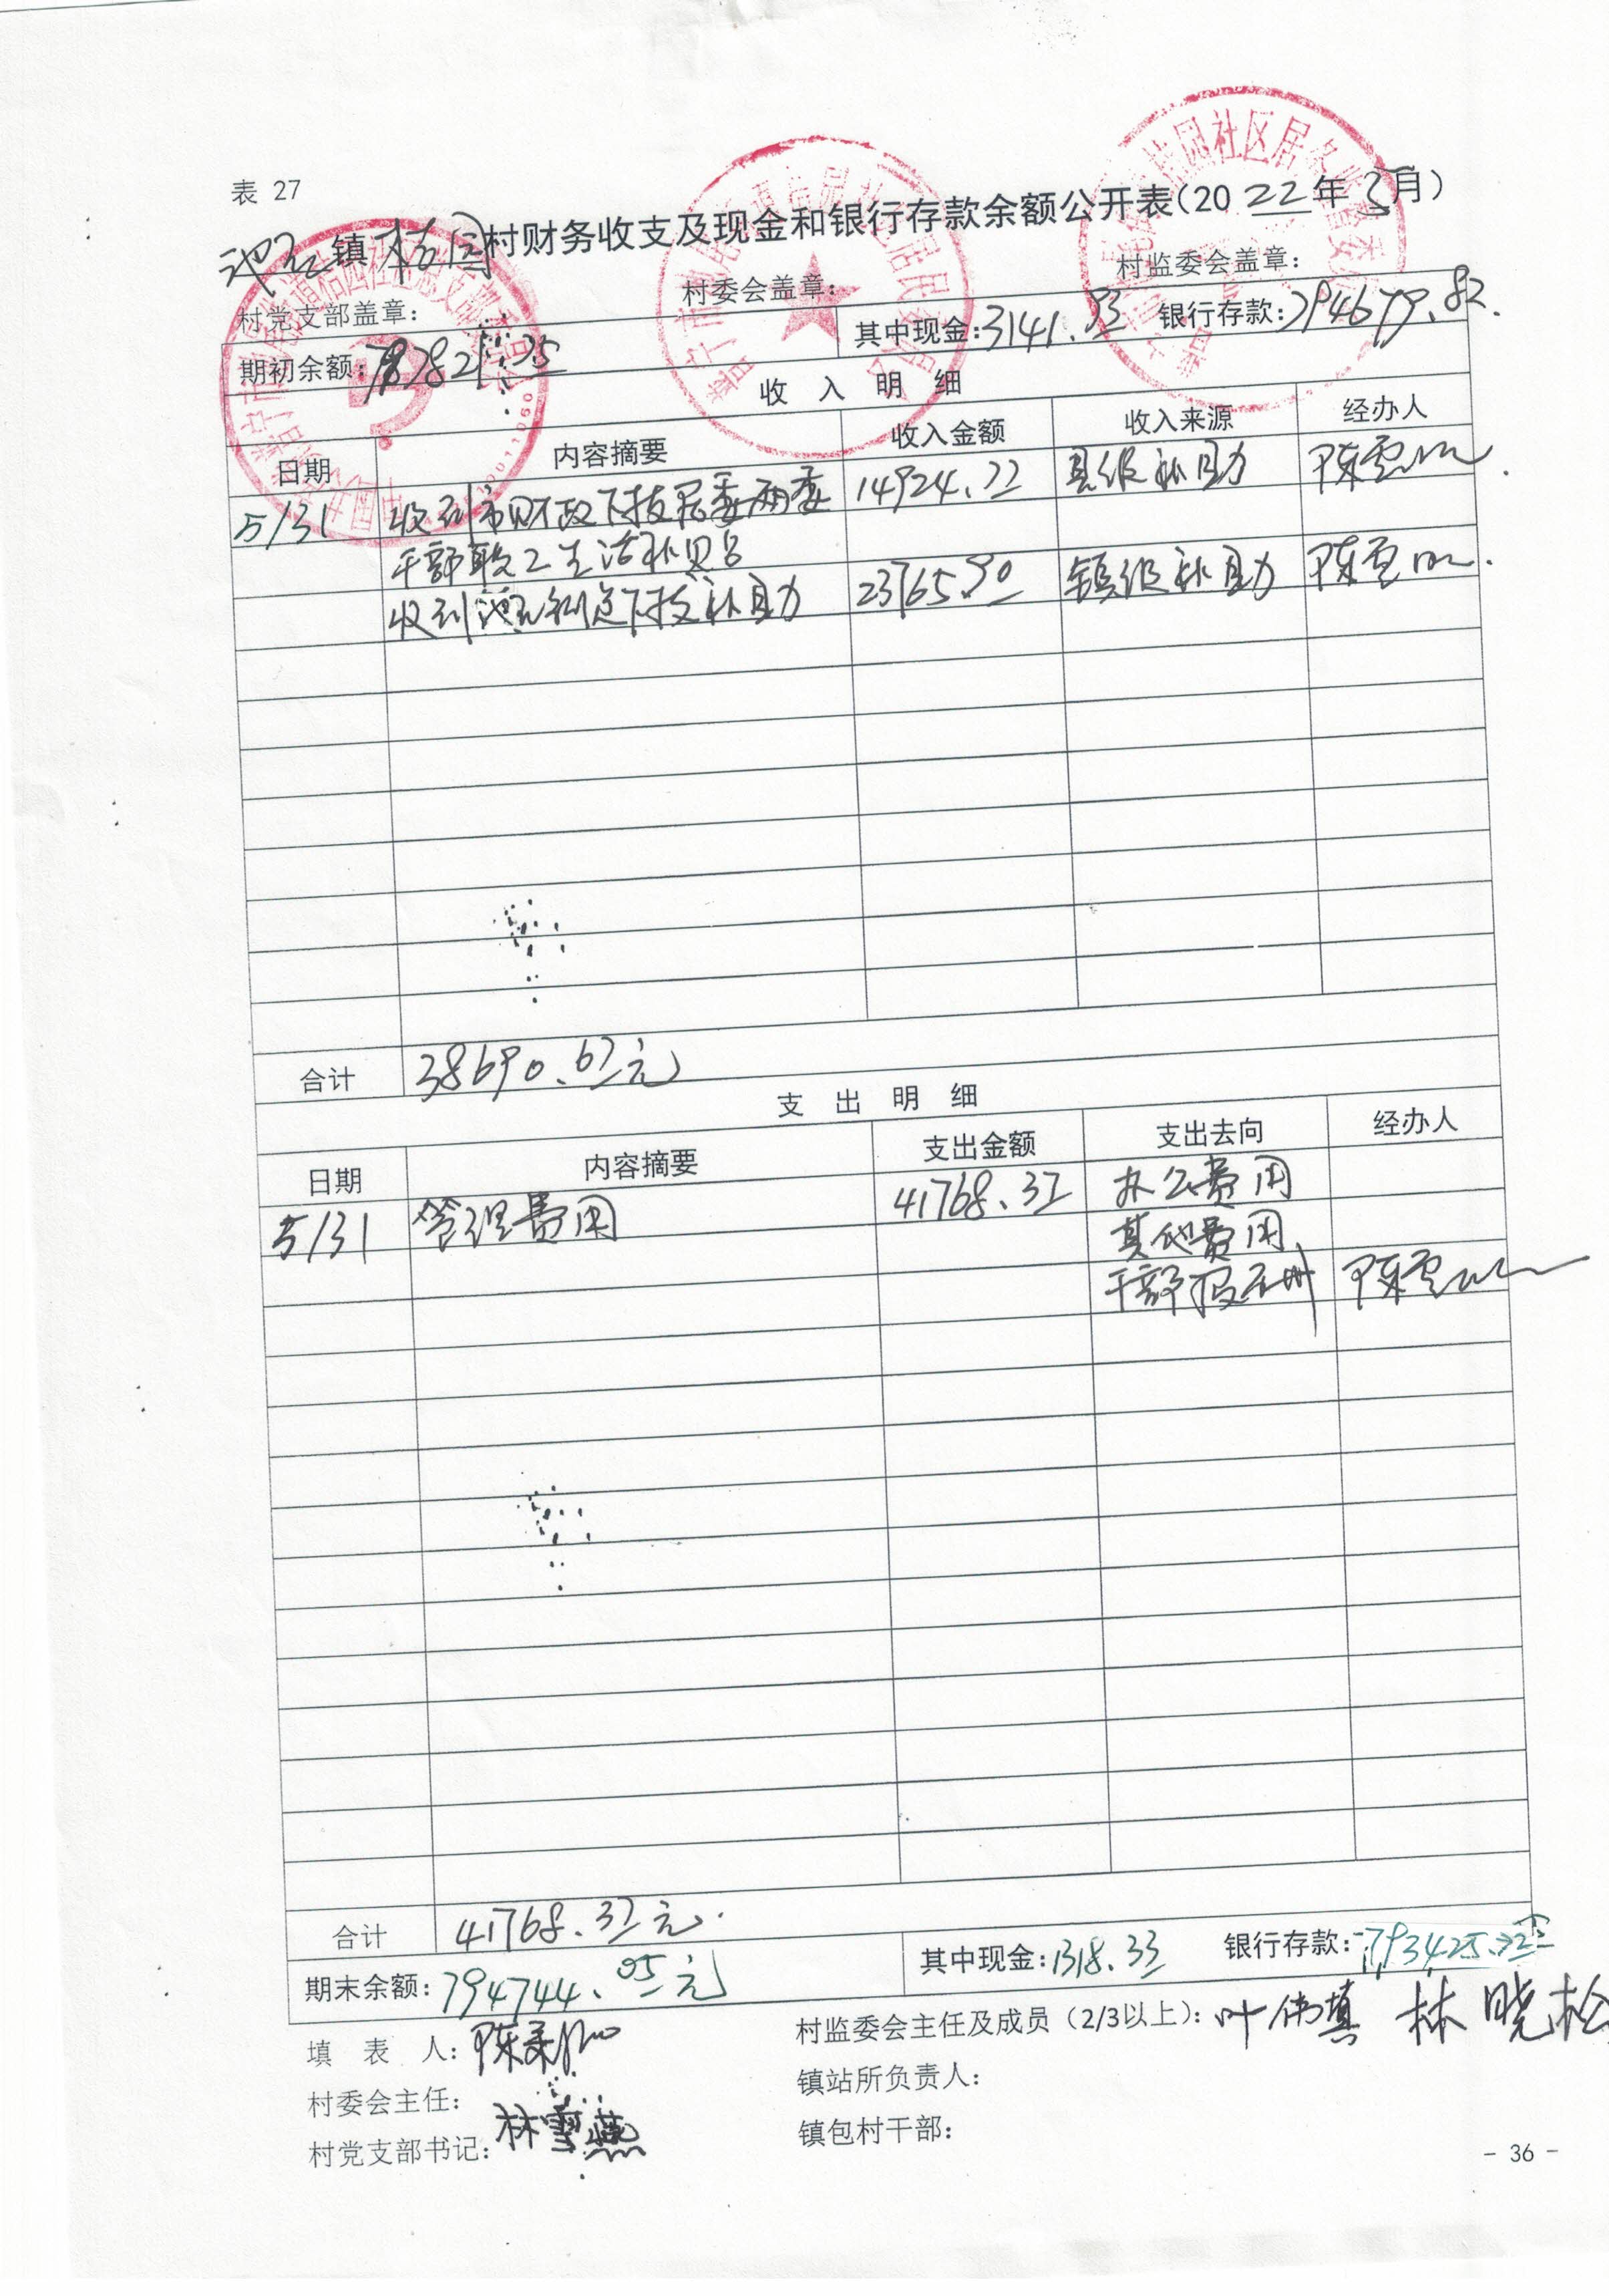 表 27
池店镇桔园村财务收支及现金和银行存款余额公开表(2022年5月)
村党支部盖章： 村委会盖章： 村监委会盖章：
期初余额：797821.75 其中现金：3141.93 银行存款：794679.82
收 入 明 细
日期 内容摘要 收入金额 收入来源 经办人
5/31 收到市财政下拨居委两委 14924.72 县级补助
干部职工生活补贴
收到 下拨补助 23765.90 镇级补助
合计 38690.62元
支 出 明 细
日期 内容摘要 支出金额 支出去向 经办人
5/31 管理费用 41768.32 办公费用
其他费用
干部报酬
合计 41768.32元
期末余额：794744.05元 其中现金：1318.33 银行存款：793425.72
填 表 人： 村监委会主任及成员（2/3以上）：叶伟真 林晓松
村委会主任： 镇站所负责人：
村党支部书记：林雪燕 镇包村干部：
- 36 -